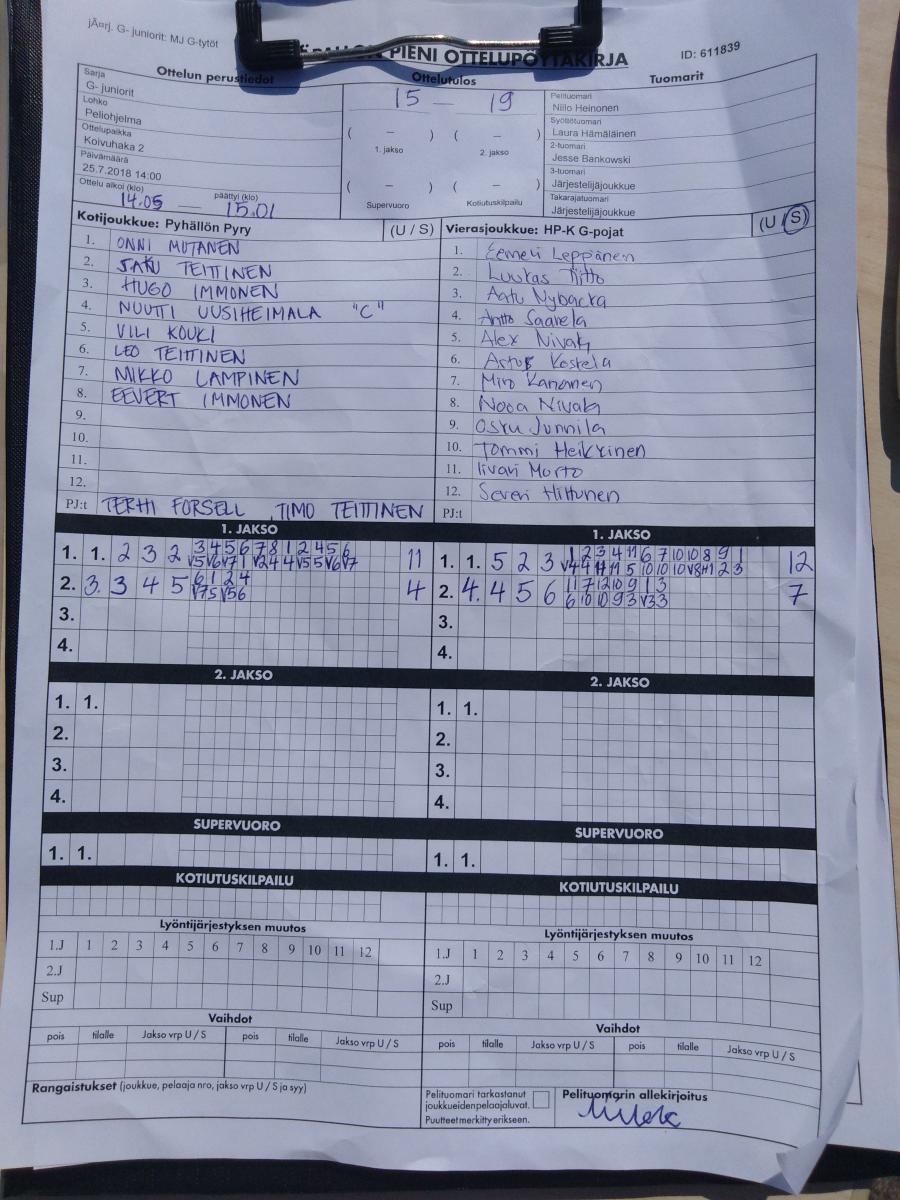 jÃ¤rj. G- juniorit: MJ G-tytöt
PIENI OTTELUPÖYTÄKIRJA
ID: 611839
Ottelun perustiedot
Ottelutulos
Tuomarit
Sarja
G- juniorit
Lohko
Peliohjelma
Ottelupaikka
Koivuhaka 2
Päivämäärä
25.7.2018 14:00
Ottelu alkoi (klo) päättyi (klo)
14.05 — 15.01
15 — 19
( – ) ( – )
1. jakso 2. jakso
( – ) ( – )
Supervuoro Kotiutuskilpailu
Pelituomari
Niilo Heinonen
Syöttötuomari
Laura Hämäläinen
2-tuomari
Jesse Bankowski
3-tuomari
Järjestelijäjoukkue
Takarajatuomari
Järjestelijäjoukkue
Kotijoukkue: Pyhällön Pyry (U / S)
1. ONNI MUTANEN
2. SAKU TEITTINEN
3. HUGO IMMONEN
4. NUUTTI UUSIHEIMALA "C"
5. VILI KOUKI
6. LEO TEITTINEN
7. MIKKO LAMPINEN
8. EEVERT IMMONEN
9.
10.
11.
12.
PJ:t TERHI FORSELL TIMO TEITTINEN
Vierasjoukkue: HP-K G-pojat (U / S)
1. Eemeli Leppänen
2. Luukas Tiitto
3. Aatu Nybacka
4. Antto Saarela
5. Alex Nivak
6. Artur Koskela
7. Miro Kananen
8. Nooa Nivak
9. Osku Junnila
10. Tommi Heikkinen
11. Iivari Murto
12. Severi Hiltunen
PJ:t
1. JAKSO
1. 1. 2 3 2 3 4 5 6 7 8 1 2 4 5 6 11
2. 3. 3 4 5 6 1 2 4 4
3.
4.
2. JAKSO
1. 1.
2.
3.
4.
SUPERVUORO
1. 1.
KOTIUTUSKILPAILU
Lyöntijärjestyksen muutos
1.J 1 2 3 4 5 6 7 8 9 10 11 12
2.J
Sup
Vaihdot
pois tilalle Jakso vrp U / S pois tilalle Jakso vrp U / S
Rangaistukset (joukkue, pelaaja nro, jakso vrp U / S ja syy)
1. JAKSO
1. 1. 5 2 3 1 2 3 4 11 6 7 10 10 8 9 1 12
2. 4. 4 5 6 11 7 12 10 9 1 3 7
3.
4.
2. JAKSO
1. 1.
2.
3.
4.
SUPERVUORO
1. 1.
KOTIUTUSKILPAILU
Lyöntijärjestyksen muutos
1.J 1 2 3 4 5 6 7 8 9 10 11 12
2.J
Sup
Vaihdot
pois tilalle Jakso vrp U / S pois tilalle Jakso vrp U / S
Pelituomari tarkastanut
joukkueiden pelaajaluvat.
Puutteet merkitty erikseen.
Pelituomarin allekirjoitus